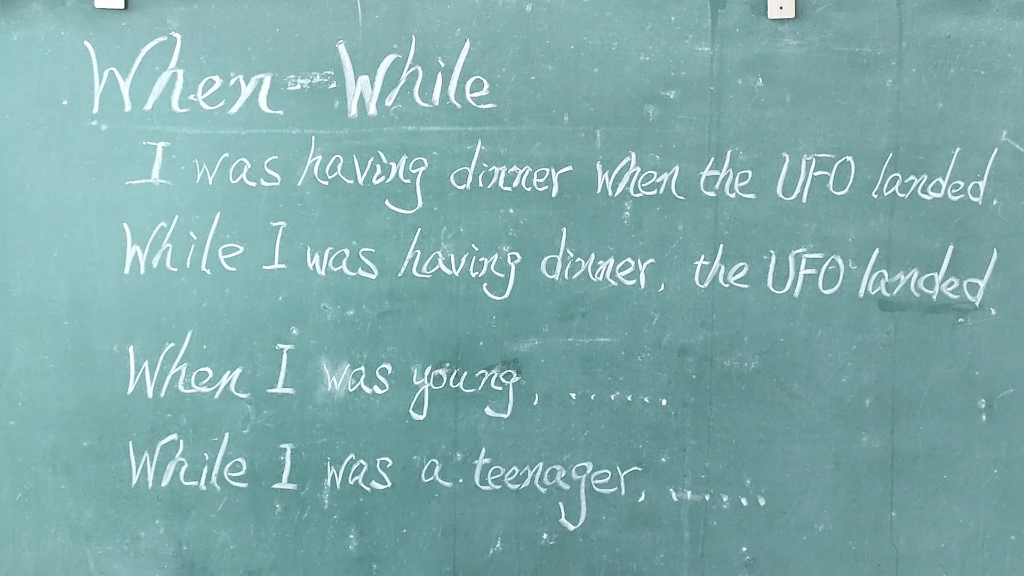 When-While
I was having dinner when the UFO landed.
While I was having dinner, the UFO landed
When I was young, .......
While I was a teenager, .......